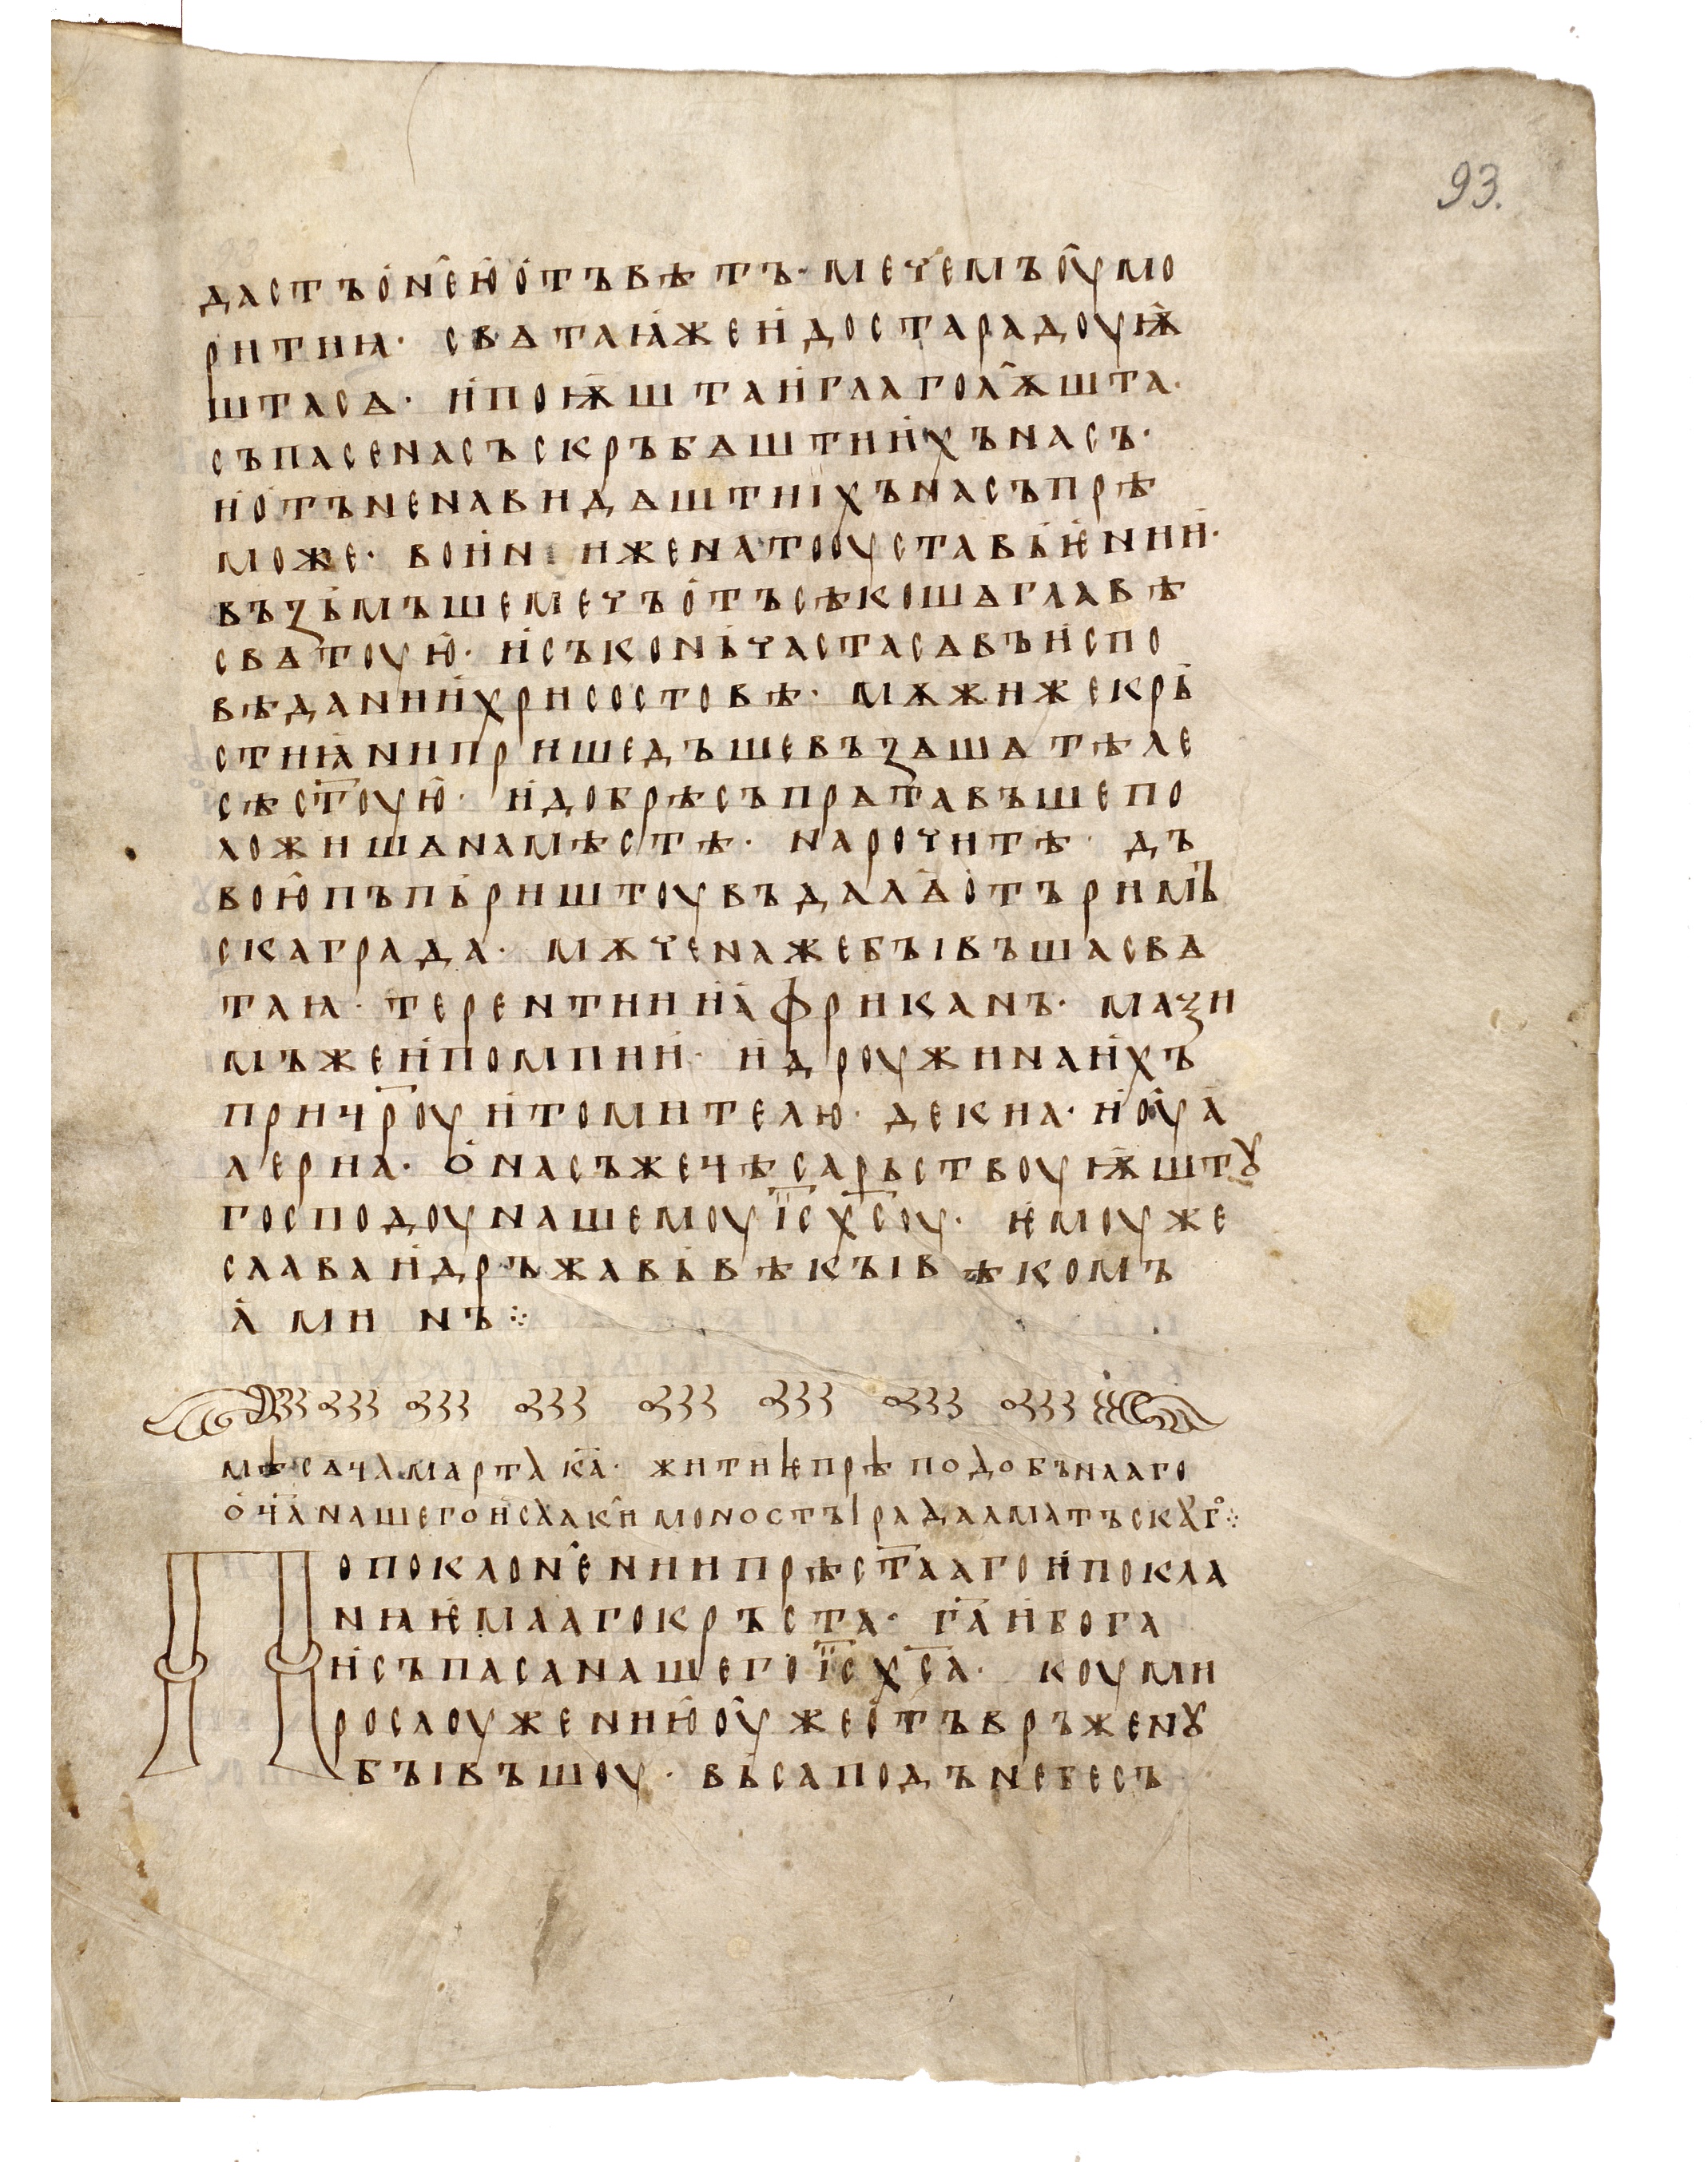 93.
дастъ о н҄е ю отъвѣтъ· мечемъ оумо
рити ꙗ· свѧтаꙗ же идоста радоуѭ
шта сѧ· и поѭшта и глагол҄ѫшта·
съпасе насъ скръбѧштиихъ насъ·
и отъ ненавидѧштиіхъ насъ прѣ
може· воини иже на то оуставьѥнии·
възьмъше мечъ отъсѣкошѧ главѣ
свѧтоую· и съконьчаста сѧ въ испо
вѣдании хрисостовѣ· мѫжи же крь
стиꙗни пришедъше възѧшѧ тѣле
сѣ с҃тоую· и добрѣ съпрѧтавъше по
ложишѧ на мѣстѣ· нарочитѣ· дъ
вою пъпьриштоу въдалѧ отъ римь
ска града· мѫчена же бꙑвъша свѧ
таꙗ· терентии и африканъ· мазї
мъ же и помпии· и дроужина ихъ
при ц҃роу и томителю· декиа· и оуа
лериа· о насъ же цѣсарьствоуѭштꙋ
господоу нашемоу і҃с х҃соу· ѥмоуже
слава и дръжава въ вѣкꙑ вѣкомъ
аминъ ⁘
мѣсѧца марта к҃а· житиѥ прѣподобънааго
оц҃а нашего исаакиꙗ моностꙑра далматъскаг҃о ⁘
По поклон҄ении прѣс҃тааго и покла
нꙗѥмааго кръста· г҃а и бога
и съпаса нашего і҃с х҃са· коуми
рослоужению оуже отъвръженꙋ
бꙑвъшоу· вьса подънебесъ